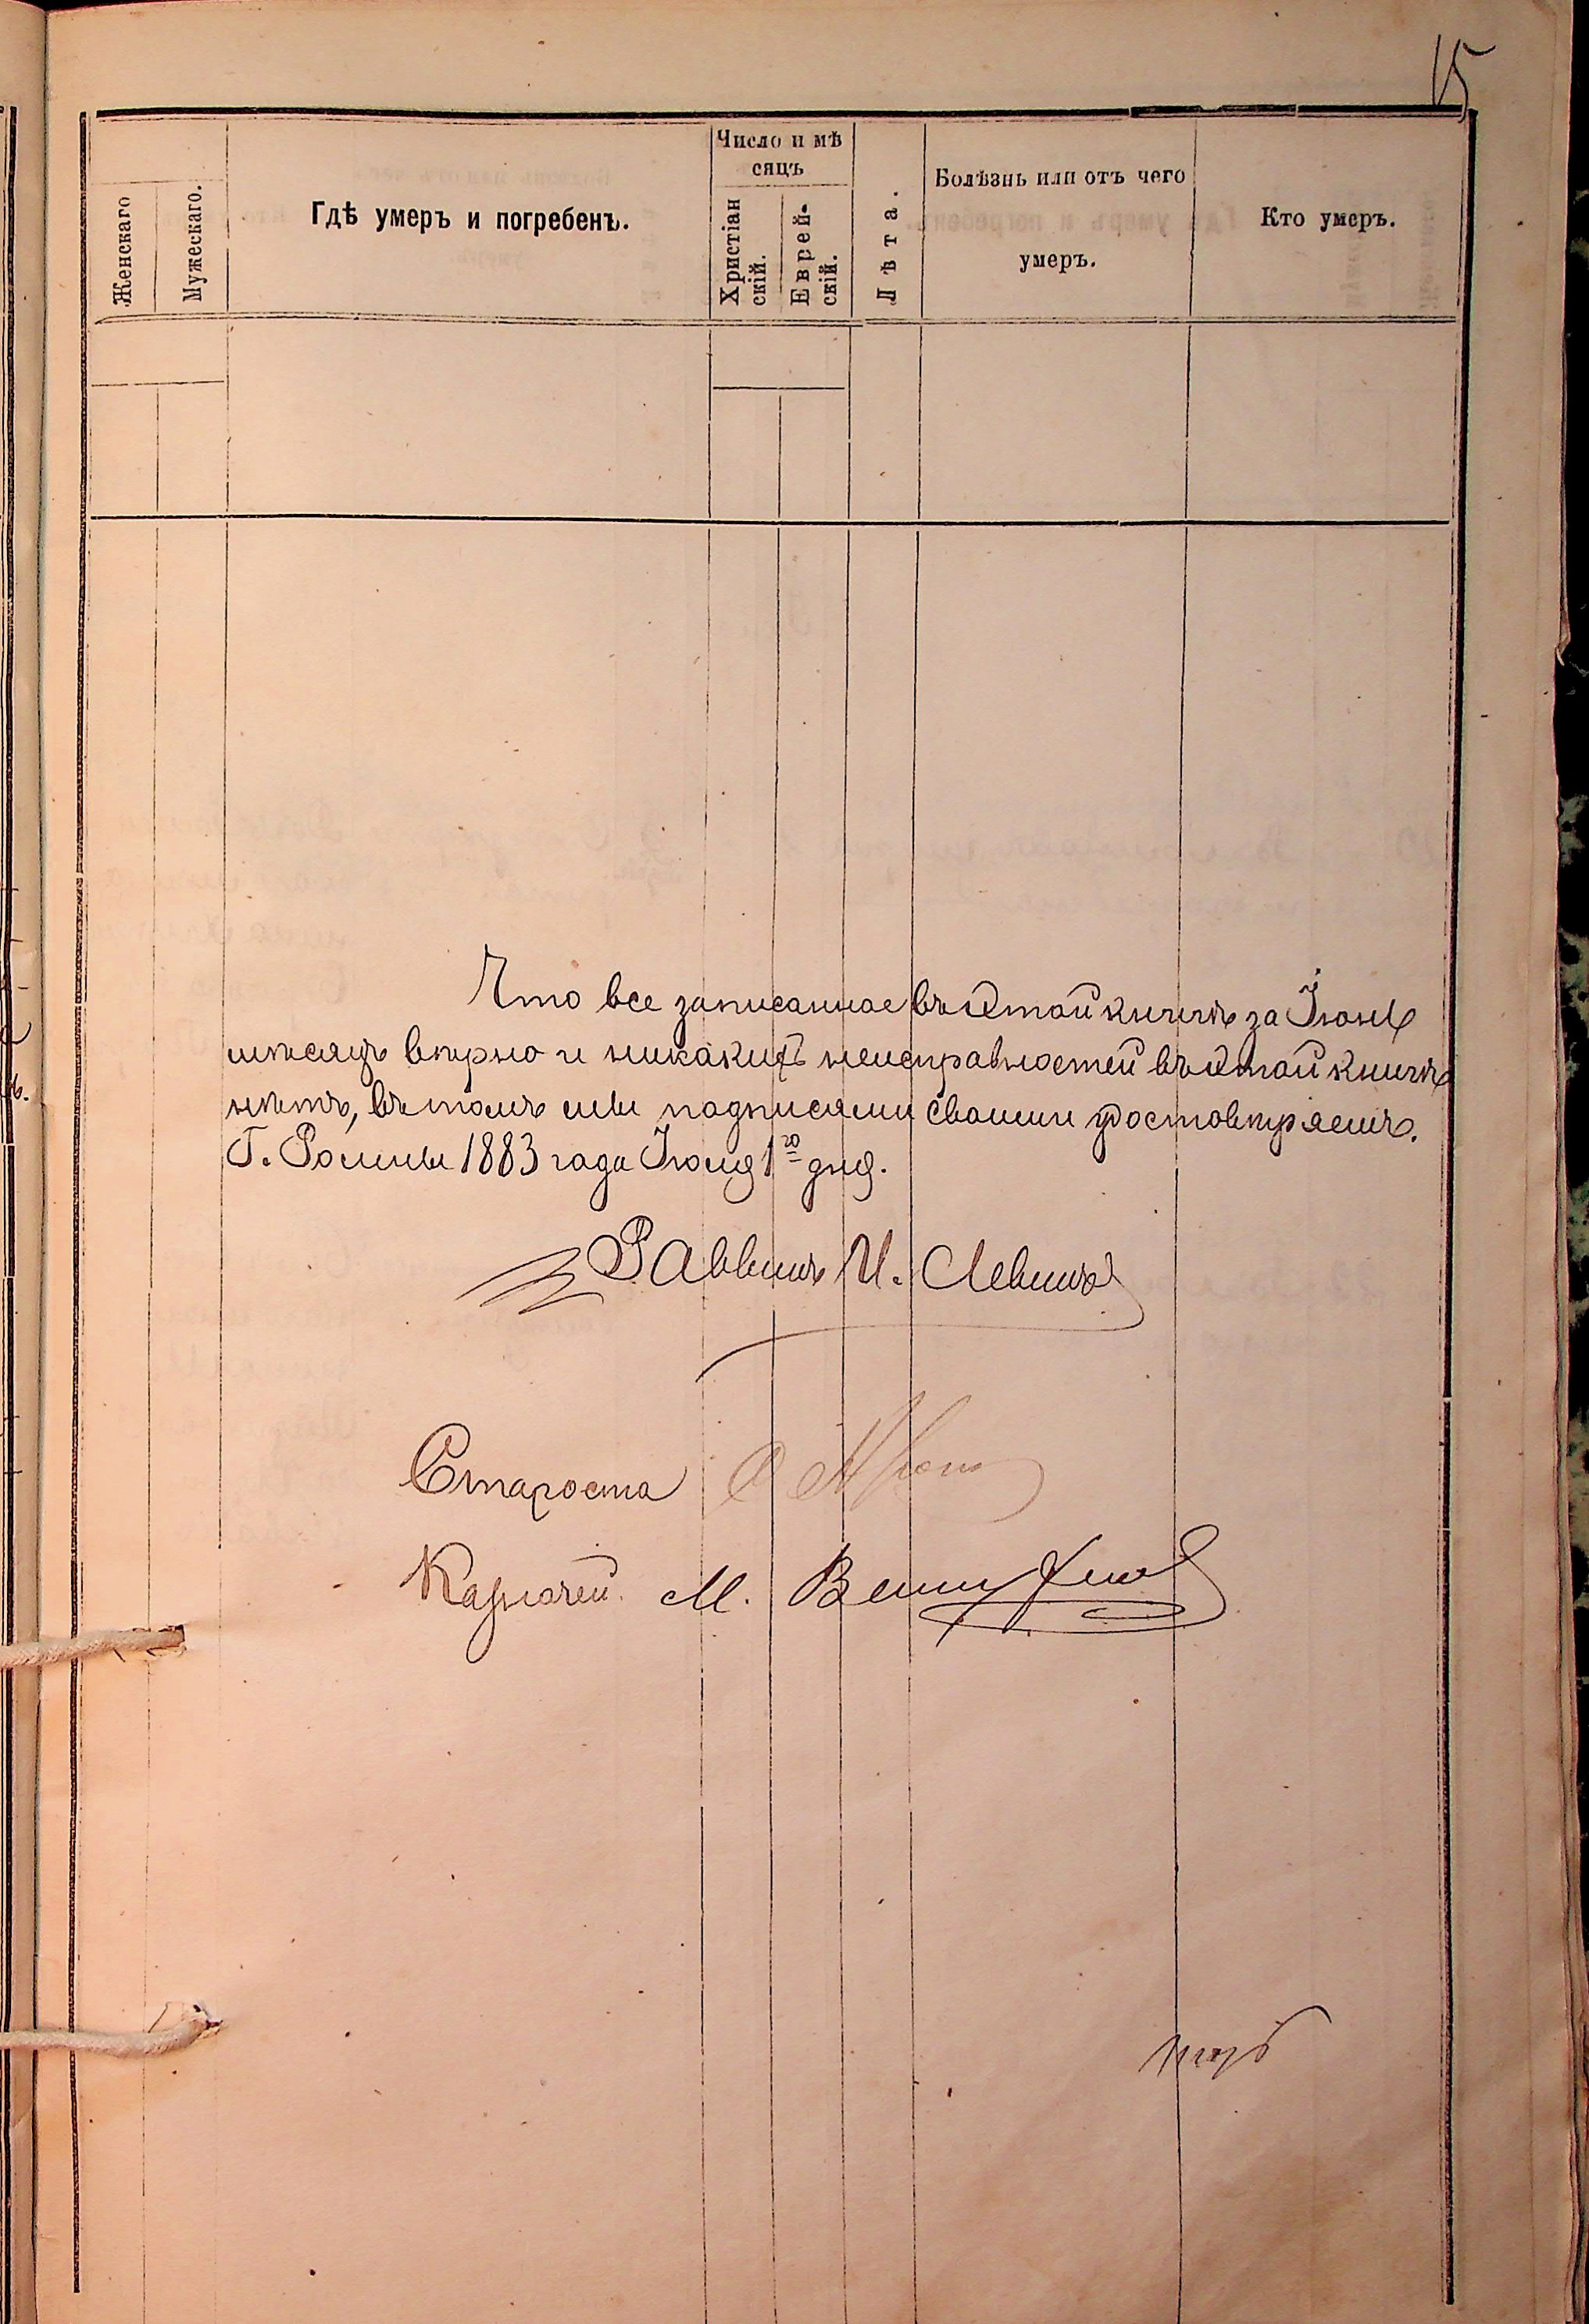 15
Число и мѣ
сяцъ
Болѣзнь или отъ чего
умеръ.
Женскаго
Мужескаго.
Гдѣ умеръ и погребенъ.
Христіан
скій.
Еврей-
скій.
Лѣта.
Кто умеръ.
Что все записанное въ этой книгѣ за Іюнь
мѣсяцъ вѣрно и никакихъ неисправностей въ этой книгѣ
нѣтъ, въ томъ мы подписями своими удостовѣряемъ.
Г. Ромны 1883 года Іюля 1го дня.
Раввинъ И. Левинъ
Староста
Казначей М.